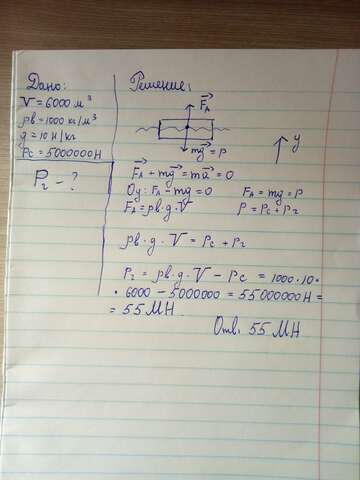 Дано:
V = 6000 м³
ρв = 1000 кг/м³
g = 10 Н/кг
Pс = 5000000 Н
Pг - ?
Решение:
Fₐ
mg = P
y
Fₐ + mg = ma = 0
Oy: Fₐ - mg = 0
Fₐ = mg = P
Fₐ = ρв · g · V
P = Pс + Pг
ρв · g · V = Pс + Pг
Pг = ρв · g · V - Pс = 1000 · 10 ·
· 6000 - 5000000 = 55000000 Н =
= 55 МН
Отв. 55 МН